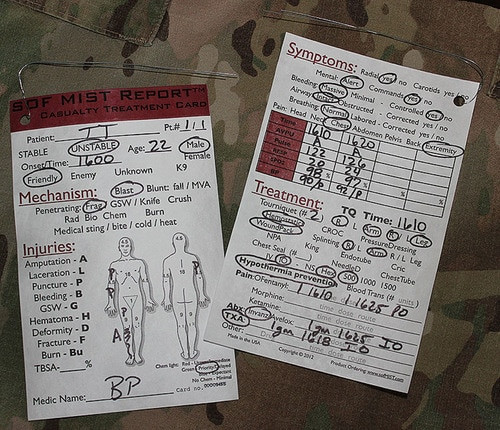 SOF MIST REPORT™
CASUALTY TREATMENT CARD
Patient: TJ Pt.# 1 / 1
STABLE UNSTABLE Age: 22 Male
Onset/Time: 1600 Female
Friendly Enemy Unknown K9
Mechanism: Blast Blunt: fall / MVA
Penetrating: Frag GSW / Knife Crush
Rad Bio Chem Burn
Medical sting / bite / cold / heat
Injuries:
Amputation - A
Laceration - L
Puncture - P
Bleeding - B
GSW - G
Hematoma - H
Deformity - D
Fracture - F
Burn - Bu
TBSA- %
Medic Name: BP
Symptoms: Radial yes no Carotids yes no
Mental: Alert Commands yes no
Bleeding: Massive Minimal - Controlled yes no
Airway Obstructed - Corrected yes / no
Breathing: Normal Labored - Corrected yes / no
Pain: Head Neck Chest Abdomen Pelvis Back Extremity
Time 1610 1620
AVPU A
Pulse 122 126
Resp 20 24
SPO2 98 % 97 %
BP 90/P 92/P
Treatment: TQ Time: 1610
Tourniquet (# 2) R L Arm R L Leg
Hemostatic CROC PressureDressing
WoundPack Splinting R L Arm R / L Leg
NPA King Endotube Cric
Chest Seal (# ) NeedleD ChestTube
IV IO NS Hex 500 1000 1500
Hypothermia prevention Blood Trans (# units)
Pain: OFentanyl: 1 1610 / 1 1625 PO
Morphine: time dose route
Ketamine: time dose route
Abx: Invanz Avelox: 1gm 1625 IO
TXA 1gm 1618 IO
Other:
Made in the USA Copyright © 2012 Product Ordering: www.sofMIST.com